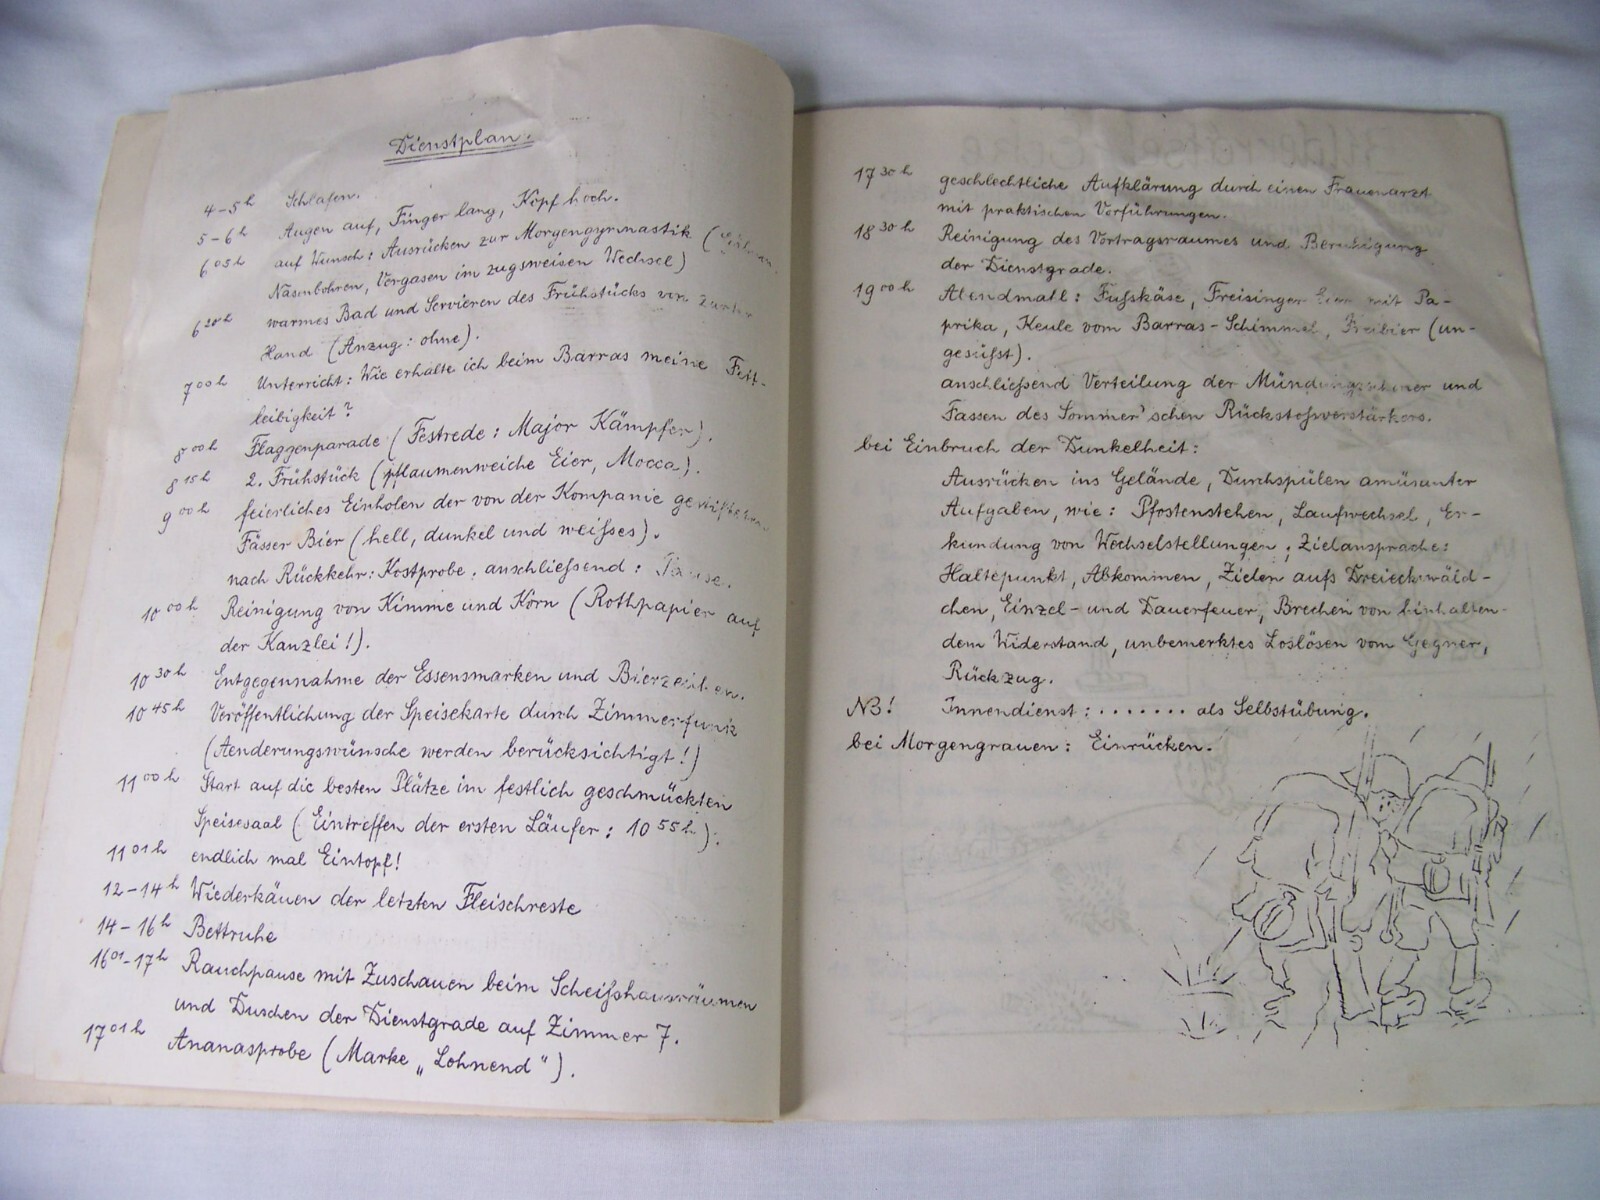 Dienstplan.
4-5h Schlafen.
5-6h Augen auf, Finger lang, Kopf hoch.
6 05 h auf Wunsch: Ausrücken zur Morgengymnastik (
Nasenbohren, Vergasen im zugsweisen Wechsel)
6 20 h warmes Bad und Servieren des Frühstücks von zarter
Hand (Anzug: ohne).
7 00 h Unterricht: Wie erhalte ich beim Barras meine Fett-
leibigkeit?
8 00 h Flaggenparade (Festrede: Major Kämpfer).
8 15 h 2. Frühstück (pflaumenweiche Eier, Mocca).
9 00 h feierliches Einholen der von der Kompanie gestifteten
Fässer Bier (hell, dunkel und weißes).
nach Rückkehr: Kostprobe, anschließend: Pause.
10 00 h Reinigung von Kimme und Korn (Rothpapier auf
der Kanzlei!).
10 30 h Entgegennahme der Essensmarken und Bierzeichen.
10 45 h Veröffentlichung der Speisekarte durch Zimmerfunk
(Aenderungswünsche werden berücksichtigt!)
11 00 h Start auf die besten Plätze im festlich geschmückten
Speisesaal (Eintreffen der ersten Läufer: 10 55 h).
11 01 h endlich mal Eintopf!
12-14h Wiederkäuen der letzten Fleischreste
14-16h Bettruhe
16 01-17h Rauchpause mit Zuschauen beim Scheißhausräumen
und Duschen der Dienstgrade auf Zimmer 7.
17 01 h Ananasprobe (Marke „Lohnend").
17 30 h geschlechtliche Aufklärung durch einen Frauenarzt
mit praktischen Vorführungen.
18 30 h Reinigung des Vortragsraumes und Beruhigung
der Dienstgrade.
19 00 h Abendmahl: Fußkäse, Freisinger Eier mit Pa-
prika, Keule vom Barras-Schimmel, Freibier (un-
gesüßt).
anschließend Verteilung der Mündungsschoner und
Fassen des Sommer'schen Rückstoßverstärkers.
bei Einbruch der Dunkelheit:
Ausrücken ins Gelände, Durchspülen amüsanter
Aufgaben, wie: Pfostenstehen, Laufwechsel, Er-
kundung von Wechselstellungen, Zielansprache:
Haltepunkt, Abkommen, Zielen aufs Dreieckswäld-
chen, Einzel- und Dauerfeuer, Brechen von hinhalten-
dem Widerstand, unbemerktes Loslösen vom Gegner,
Rückzug.
NB! Innendienst: ....... als Selbstübung.
bei Morgengrauen: Einrücken.